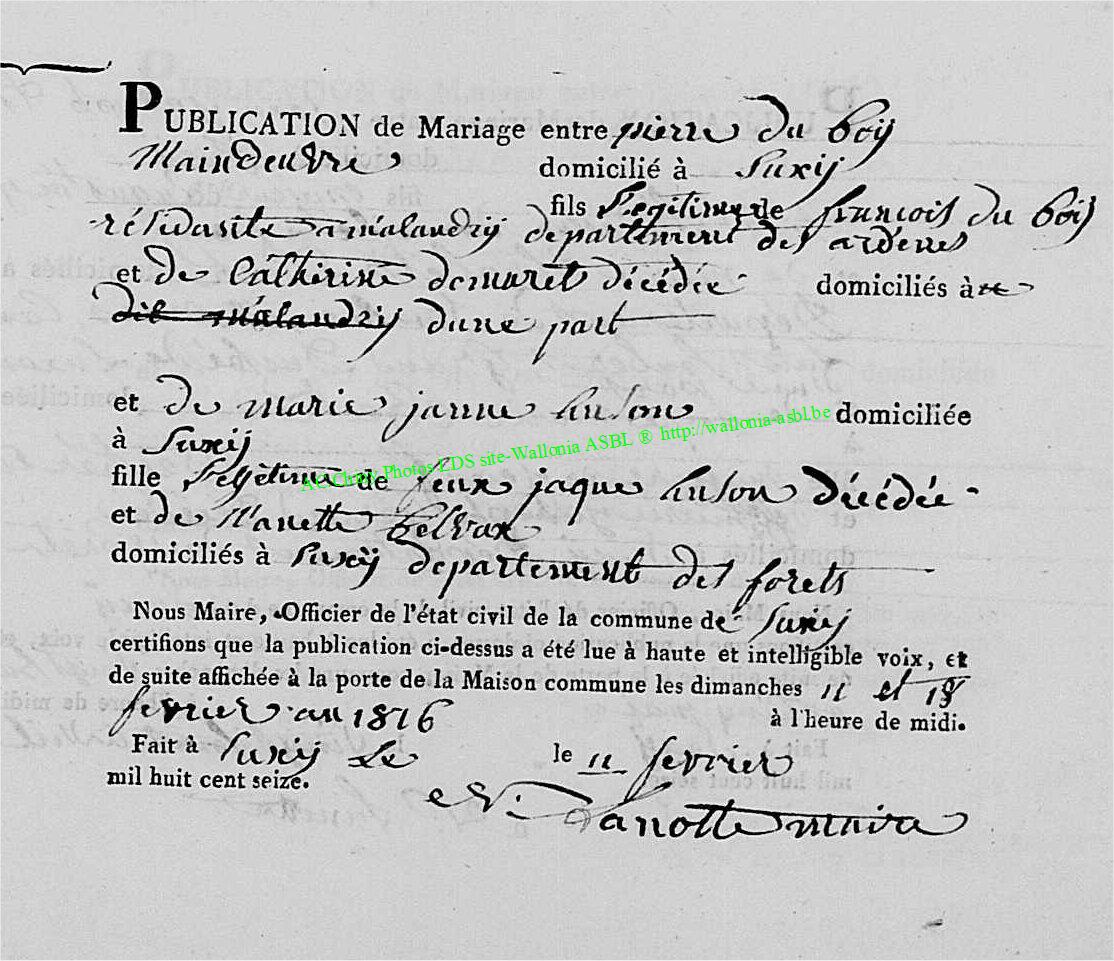 PUBLICATION de Mariage entre pierre du boij
Maindeuvre domicilié à Suxij
fils Legitime de françois du boij
résidant a malandrij departement des ardenes
et de Catherine demaret décédée domiciliés à
dit malandrij dune part
et de marie janne husson domiciliée
à Suxij
fille Legetime de feux jaque husson décédée
et de Nanette
domiciliés à Suxij departement des forets
Nous Maire, Officier de l'état civil de la commune de Suxij
certifions que la publication ci-dessus a été lue à haute et intelligible voix, et
de suite affichée à la porte de la Maison commune les dimanches 11 et 18
fevrier an 1816 à l'heure de midi.
Fait à Suxij Le le 11 fevrier
mil huit cent seize.
Lanotte maire
AC Chiny Photos EDS site-Wallonia ASBL ® http://wallonia-asbl.be